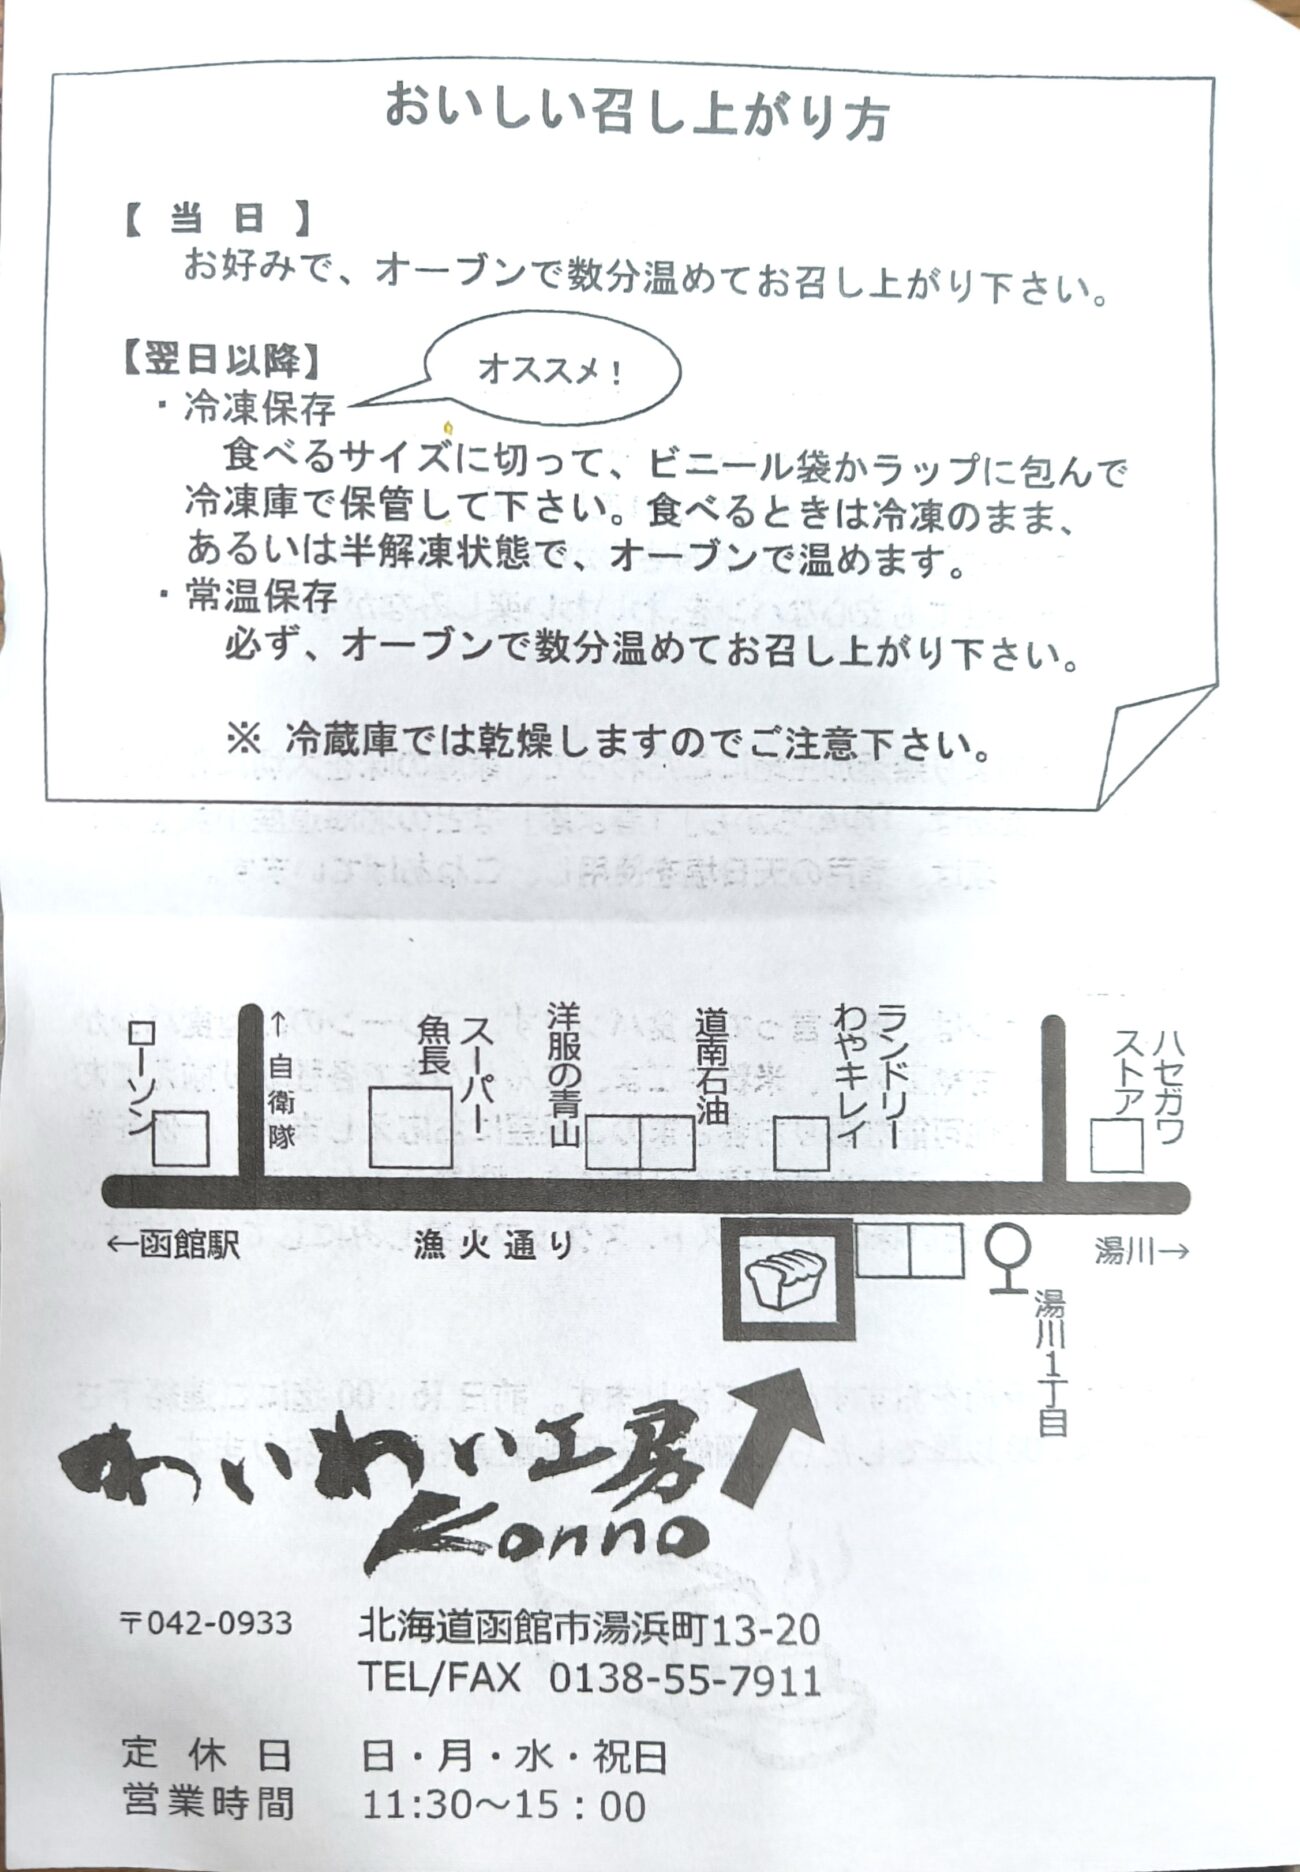 おいしい召し上がり方
【 当 日 】
お好みで、オーブンで数分温めてお召し上がり下さい。
【翌日以降】
オススメ！
・冷凍保存
食べるサイズに切って、ビニール袋かラップに包んで
冷凍庫で保管して下さい。食べるときは冷凍のまま、
あるいは半解凍状態で、オーブンで温めます。
・常温保存
必ず、オーブンで数分温めてお召し上がり下さい。
※ 冷蔵庫では乾燥しますのでご注意下さい。
ローソン
↑自衛隊
スーパー
魚長
洋服の青山
道南石油
ランドリー
わやキレイ
ハセガワ
ストア
←函館駅
漁火通り
湯川→
湯川1丁目
わいわい工房
Konno
〒042-0933 北海道函館市湯浜町13-20
TEL/FAX 0138-55-7911
定休日 日・月・水・祝日
営業時間 11:30～15：00